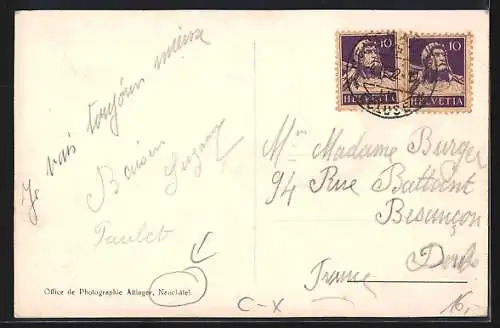 Je vais toujours mieux
Baisers
Suzanne
Paulet
Office de Photographie Attinger, Neuchâtel
C-X
10 10
HELVETIA HELVETIA
Mme Madame Burger
94 Rue Battant
Besançon
Doubs
France
16,-